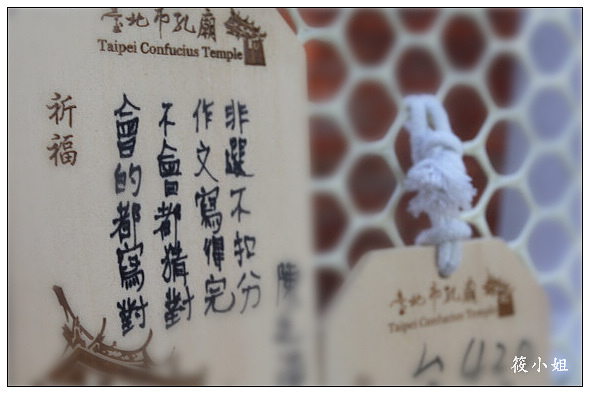 臺北市孔廟
Taipei Confucius Temple
祈福
會的都寫對
不會都猜對
作文寫得完
非選不扣分
臺北市孔廟
Taipei Confucius Temple
筱小姐